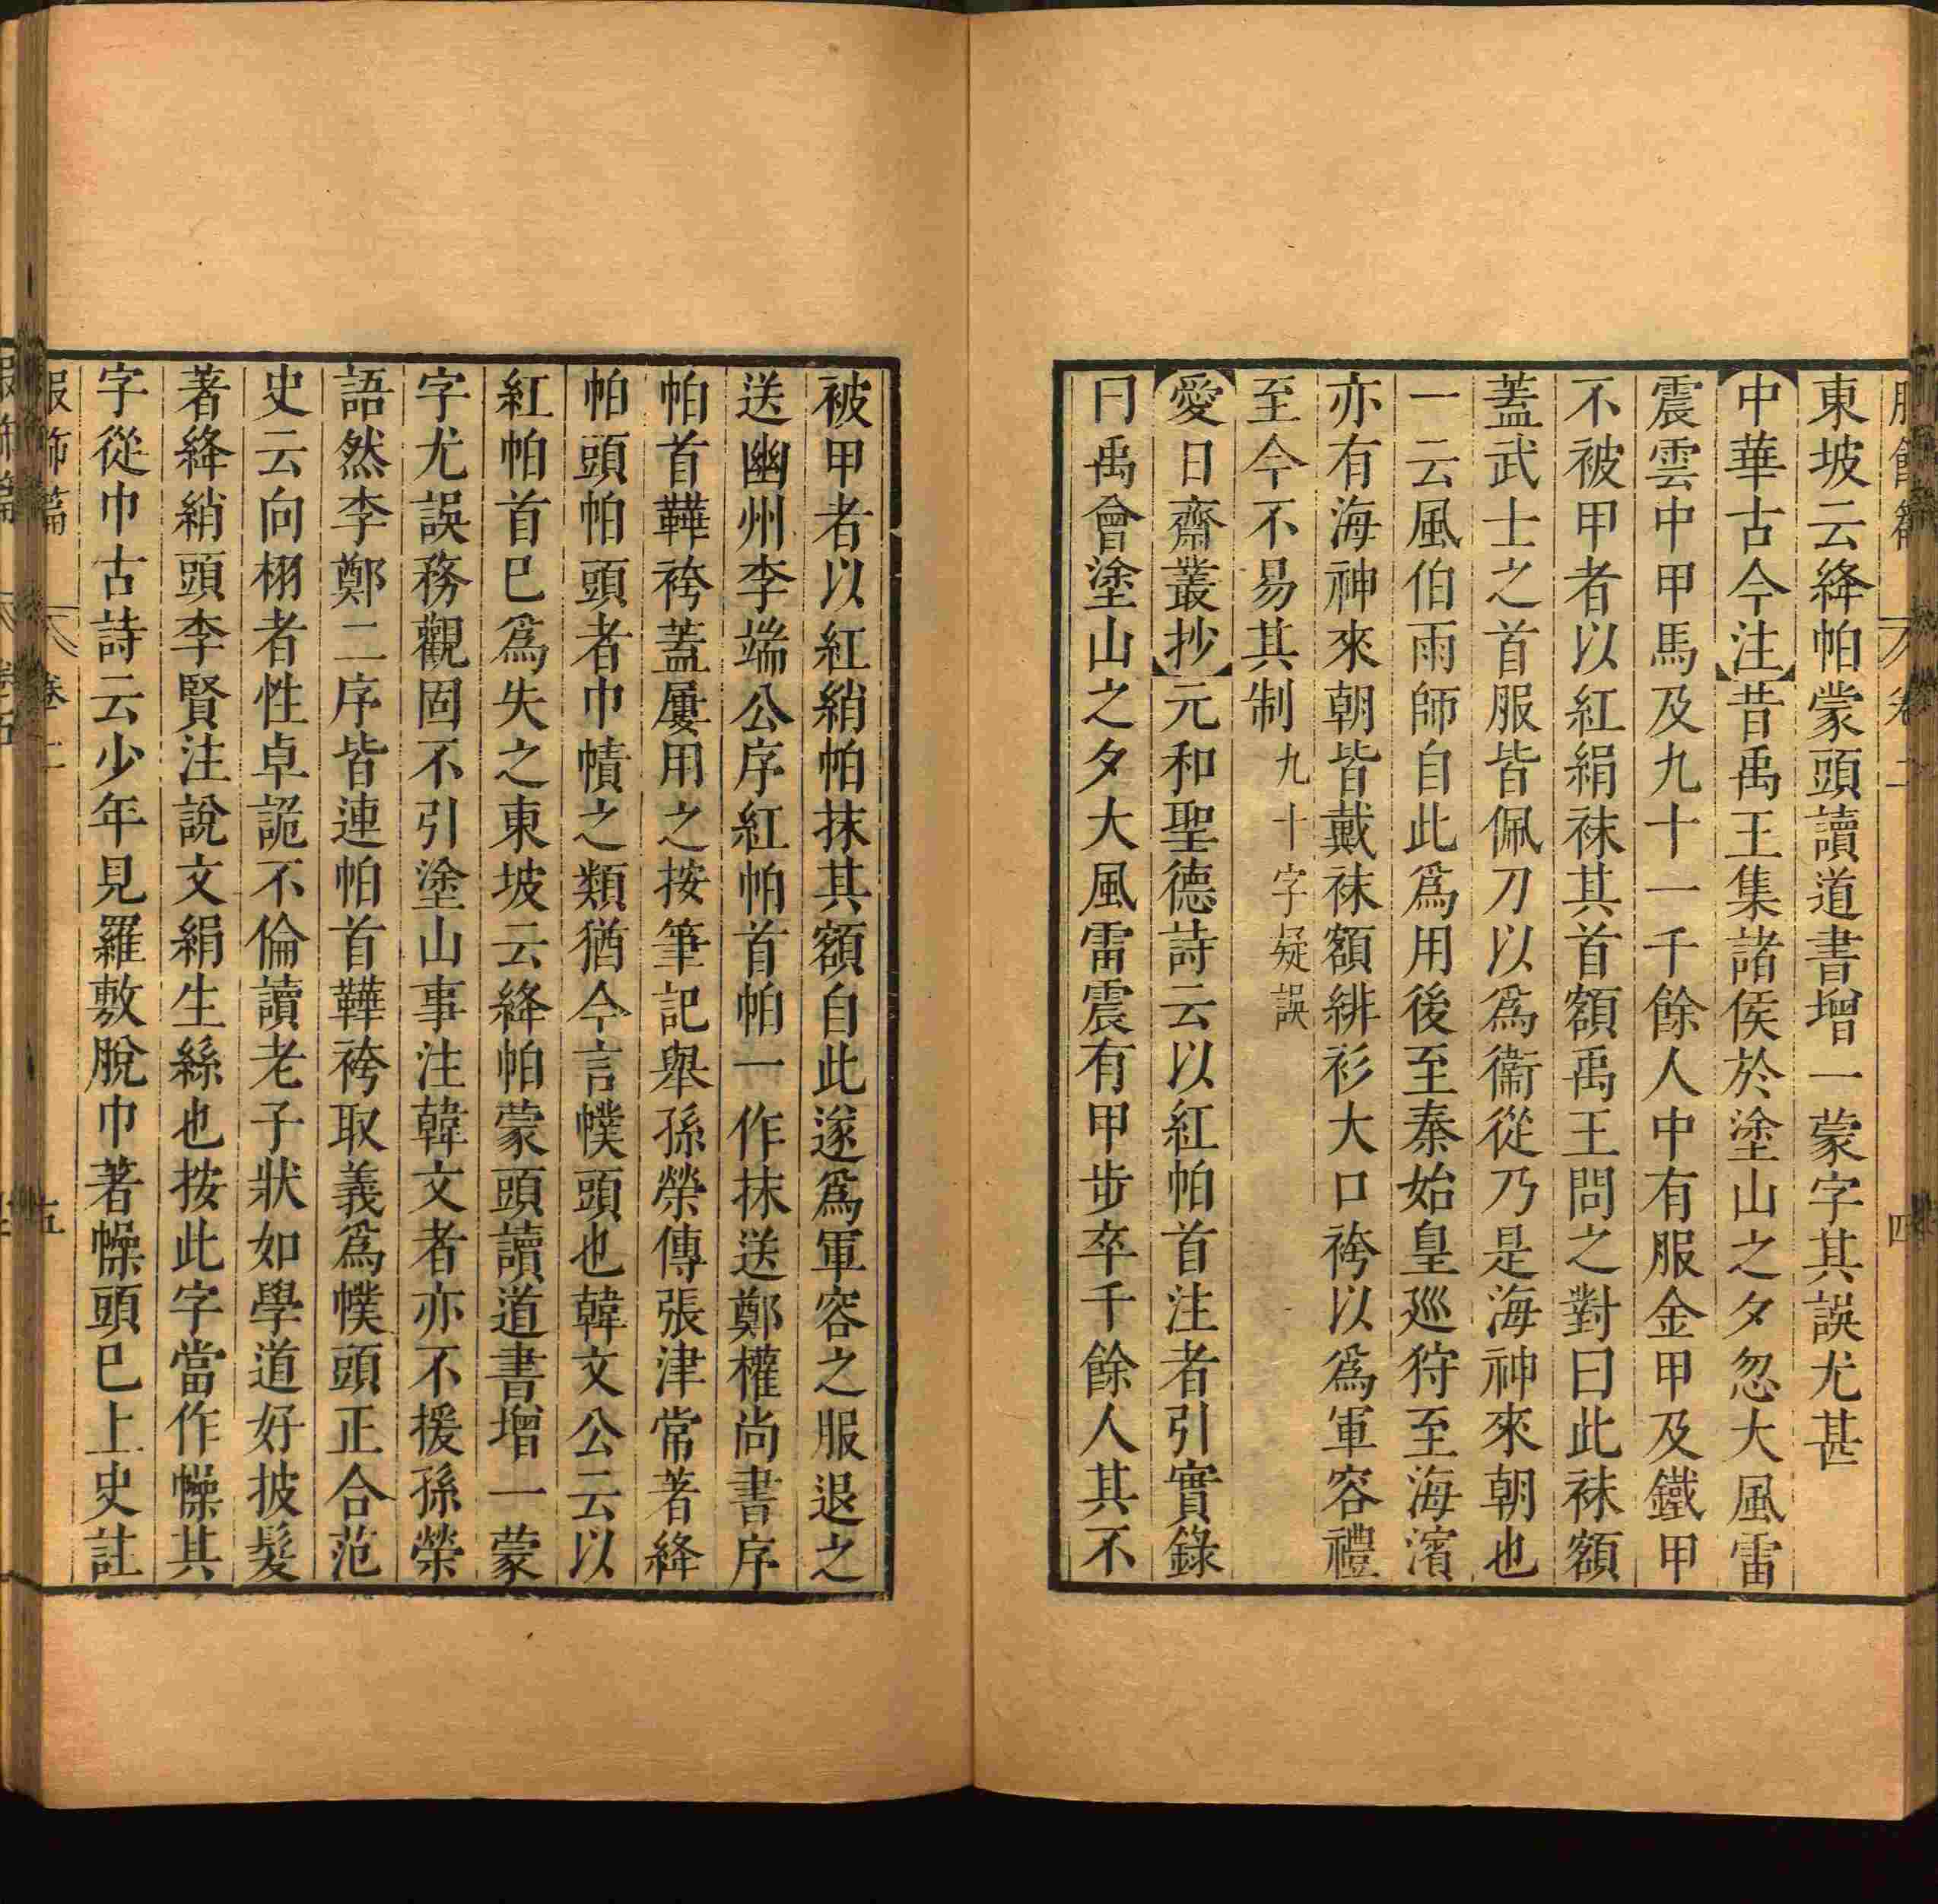 服飾篇 卷二 四
東坡云絳帕蒙頭讀道書增一蒙字其誤尤甚
中華古今注昔禹王集諸侯於塗山之夕忽大風雷
震雲中甲馬及九十一千餘人中有服金甲及鐵甲
不被甲者以紅絹袜其首額禹王問之對曰此袜額
蓋武士之首服皆佩刀以爲衞從乃是海神來朝也
一云風伯雨師自此爲用後至秦始皇巡狩至海濱
亦有海神來朝皆戴袜額緋衫大口袴以爲軍容禮
至今不易其制九十字疑誤
愛日齋叢抄元和聖德詩云以紅帕首注者引實錄
曰禹會塗山之夕大風雷震有甲步卒千餘人其不
被甲者以紅綃帕抹其額自此遂爲軍容之服退之
送幽州李端公序紅帕首帕一作抹送鄭權尚書序
帕首鞾袴蓋屢用之按筆記舉孫榮傳張津常著絳
帕頭帕頭者巾幘之類猶今言幞頭也韓文公云以
紅帕首巳爲失之東坡云絳帕蒙頭讀道書增一蒙
字尤誤務觀固不引塗山事注韓文者亦不援孫榮
語然李鄭二序皆連帕首鞾袴取義爲幞頭正合范
史云向栩者性卓詭不倫讀老子狀如學道好披髮
著絳綃頭李賢注說文綃生絲也按此字當作幧其
字從巾古詩云少年見羅敷脫巾著幧頭巳上史註
服飾篇 卷二 五